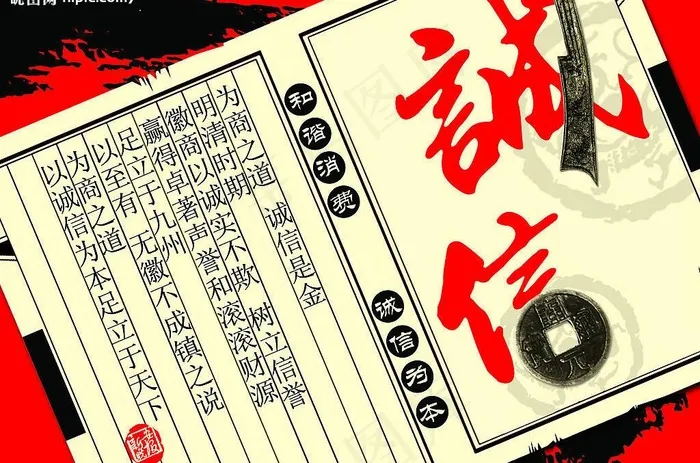 昵图网 nipic.com/
誠信
和谐消费
诚信为本
为商之道 诚信是金
明清时期
徽商以诚实不欺 树立信誉
赢得卓著声誉和滚滚财源
足立于九州
以至有 无徽不成镇之说
为商之道
以诚信为本足立于天下